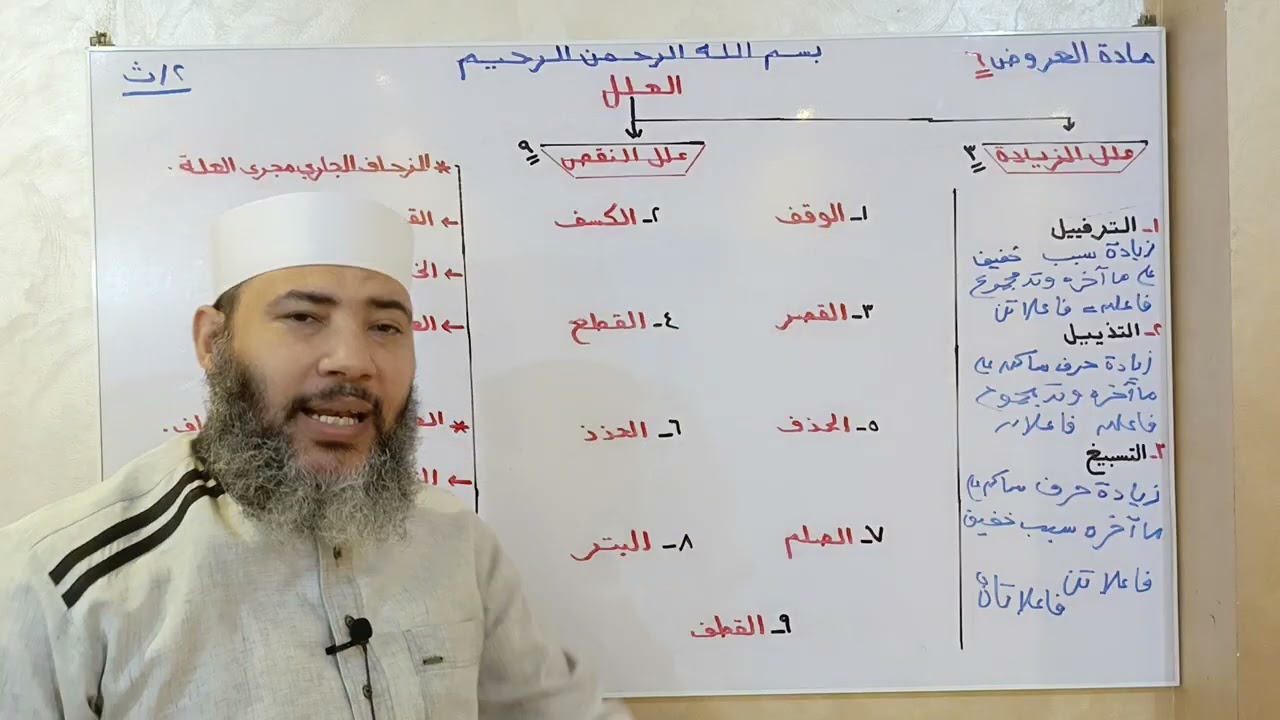 مادة العروض ٦
بسم الله الرحمن الرحيم
٢/ث
العلل
علل الزيادة ٣
علل النقص ٩
١- الترفييل
زيادة سبب خفيف
على ما آخره وتد مجموع
فاعلن = فاعلاتن
٢- التذييل
زيادة حرف ساكن على
ما آخره وتد مجموع
فاعلن فاعلان
٣- التسبيغ
زيادة حرف ساكن على
ما آخره سبب خفيف
فاعلاتن فاعلاتان
١- الوقف
٢- الكسف
٣- القصر
٤- القطع
٥- الحذف
٦- الحذذ
٧- الصلم
٨- البتر
٩- القطف
* الزحاف الجاري مجرى العلة .